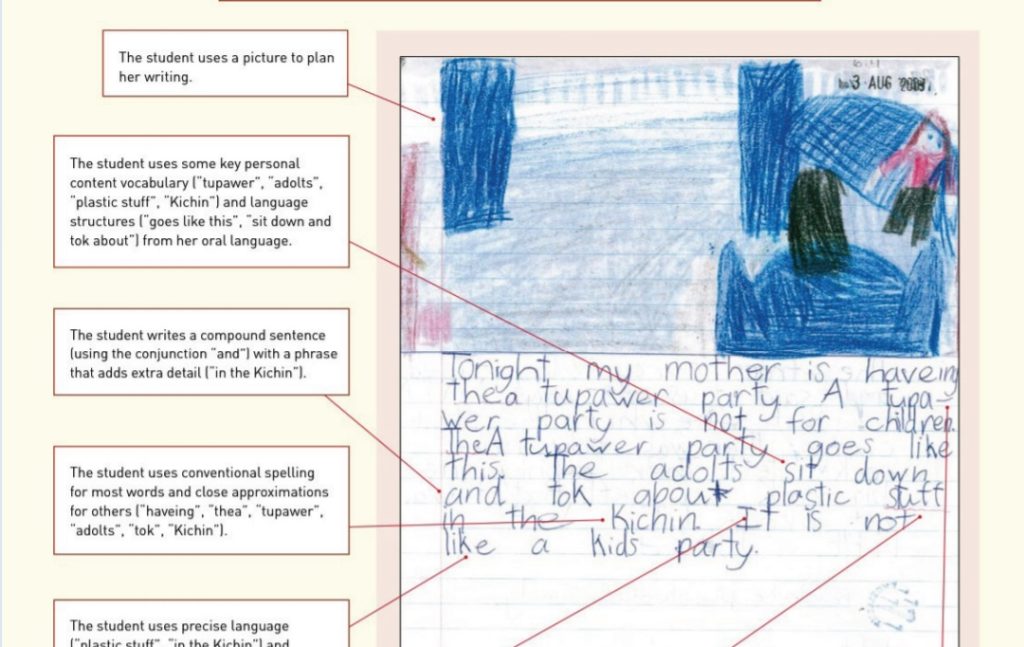 The student uses a picture to plan
her writing.
The student uses some key personal
content vocabulary (“tupawer”, “adolts”,
“plastic stuff”, “Kichin”) and language
structures (“goes like this”, “sit down and
tok about”) from her oral language.
The student writes a compound sentence
(using the conjunction “and”) with a phrase
that adds extra detail (“in the Kichin”).
The student uses conventional spelling
for most words and close approximations
for others (“haveing”, “thea”, “tupawer”,
“adolts”, “tok”, “Kichin”).
The student uses precise language
(“plastic stuff”, “in the Kichin”) and
3 AUG
Tonight my mother is haveing
thea tupawer party. A tupa-
wer party is not for children.
TheA tupawer party goes like
this. The adolts sit down
and tok about plastic stuff
in the Kichin. It is not
like a kids party.